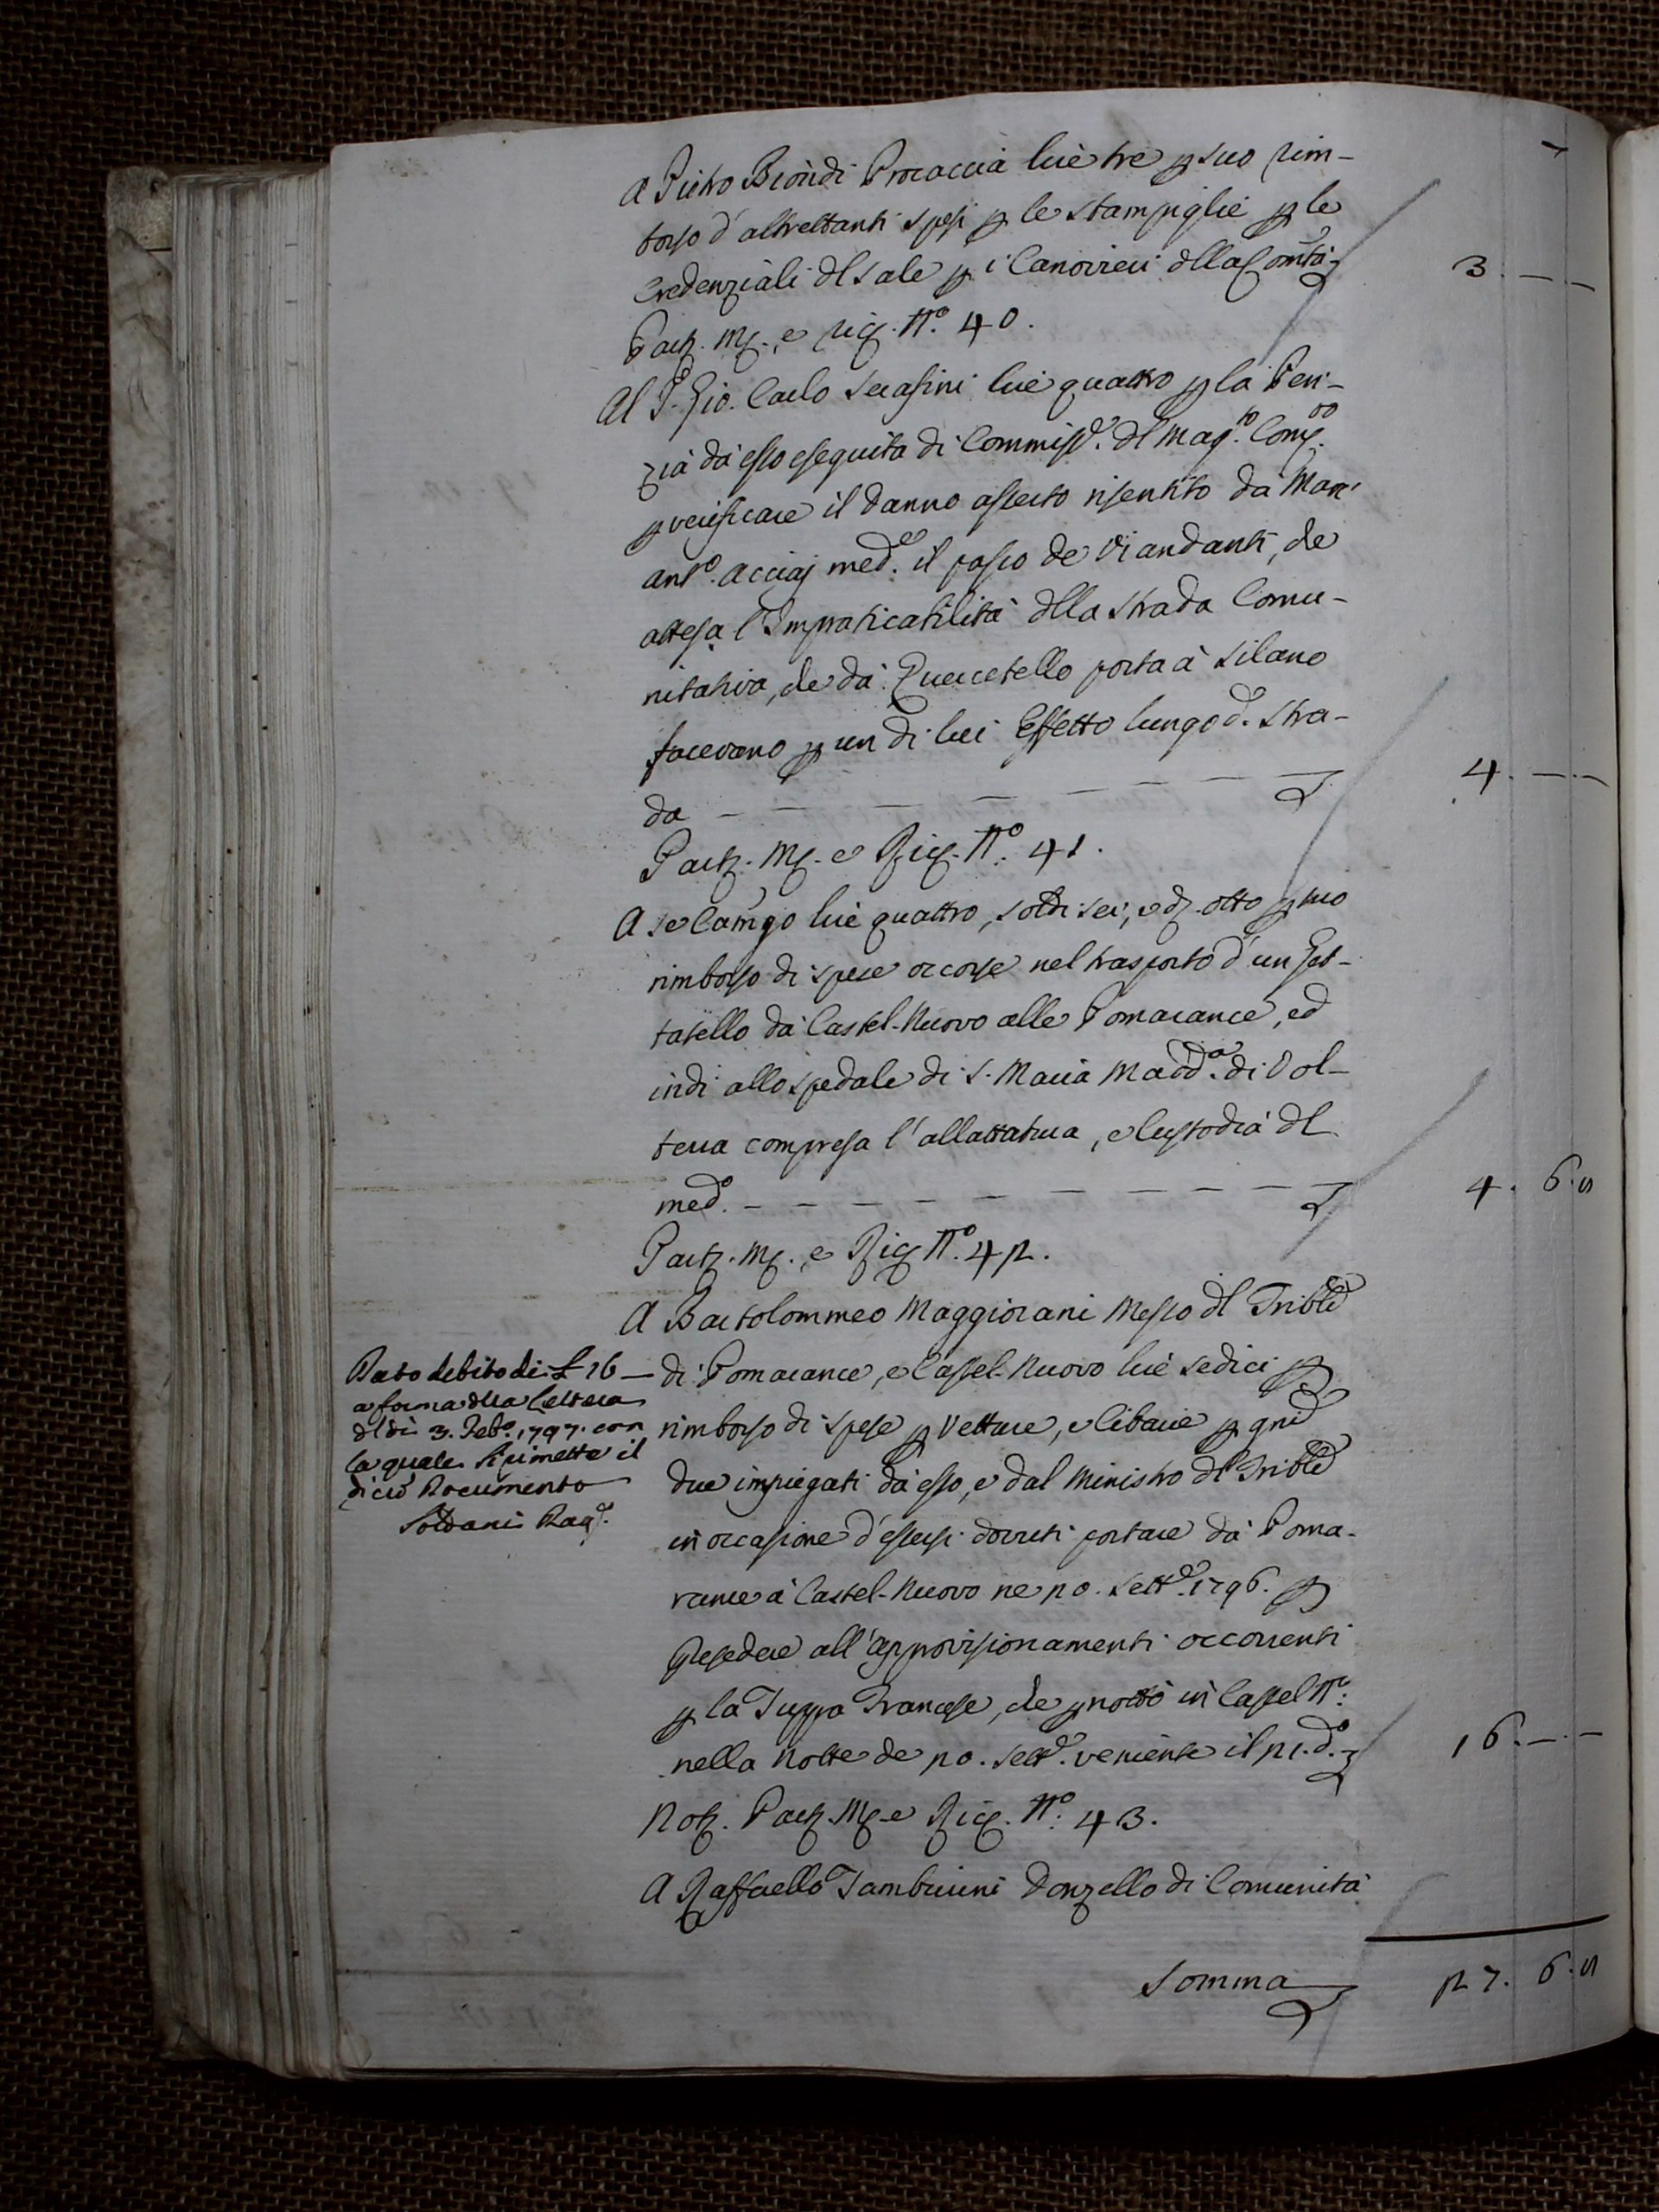 A Pietro Biondi Procaccia lire tre p suo rim-
borso d'altrettanti spesi p le stampiglie p le
Credenziali dl sale p i Canovieri dlla Comtà
3. — . —
Part. Mg. e Ric. N.º 40.
Al P. Gio. Carlo Serafini lire quattro p la Peri-
zia da esso eseguita di Commiss.e dl Mag.to Com.vo
p verificare il danno asserto risentito da Mar.
Ant.º Acciaj med.e il passo de Viandanti, che
attesa l'Impraticabilità dlla strada Comu-
nitativa, che da Quercetello porta à Silano
facevano p un di lui Effetto lungo d.a stra-
da — — — — — — — —
4. — . —
Part. Mg. e Ric. N.º 41.
A se Camgo lire quattro, soldi sei, e d. otto p suo
rimborso di spese occorse nel trasporto d'un Get-
tatello da Castel-Nuovo alle Pomarance, ed
indi allo spedale di S. Maria Madd.a di Vol-
terra compresa l'allattatura, e Custodia dl
med.º — — — — — — — — —
4. 6. 8
Part. Mg. e Ric. N.º 42.
A Bartolommeo Maggiorani Messo dl Trible
di Pomarance, e Castel-Nuovo lire sedici p
rimborso di spese p Vetture, e Cibarie p gni
due impiegati da esso, e dal Ministro dl Trible
in occasione d'essersi dovuti portare da Poma-
rance à Castel-Nuovo ne 20. Sett.e 1796. p
Presedere all'approvisionamenti occorrenti
p la Truppa Francese, che pnottò in Castel N.º
nella Notte de 20. Sett.e veniente il 21. d.º
16. — . —
Not. Part. Mg. e Ric. N.º 43.
A Raffaello Tamburini Donzello di Comunità
Somma
27. 6. 8
Dato debito di £ 16 —
a forma dlla Lettera
dl dì 3. Feb.º 1797. con
la quale si rimette il
di cui Documento
Soldani Rag.e